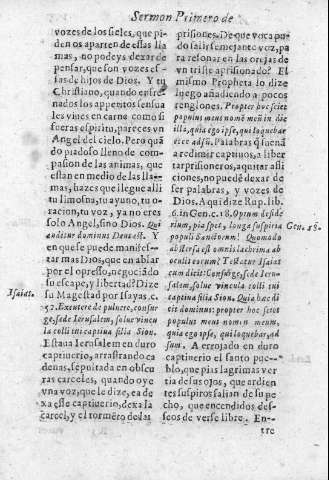 Sermon Primero de
vozes de los fieles, que pi-
den os aparten de essas lla
mas, no podeys dexar de
pensar, que son vozes es-
sas de hijos de Dios. Y tu
Christiano, quando enfre
nados los appetitos sensua
les viues en carne como si
fueras espiritu, pareces vn
Angel del cielo. Pero quã
do piadoso lleno de com-
pasion de las animas, que
estan en medio de las lla-
mas, hazes que llegue alli
tu limosna, tu ayuno, tu o-
racion, tu voz, ya no eres
solo Angel, sino Dios. Qui
auditur dominus Deus est. Y
en que se puede manifes-
tar mas Dios, que en ablar
por el opresso, negociãdo
su escape, y libertad? Dize
su Magestad por Isayas. c.
Isaiæ.
52. Excutere de puluere, consur
ge, sede Ierusalem, solue vincu
la colli tui captiua filia Sion.
Estaua Ierusalem en duro
captiuerio, arrastrando ca
denas, sepultada en obscu
ras carceles, quando oye
vna voz, que le dize, ea de
xa este captiuerio, dexa la
carcel, y el tormẽto de las
prisiones. De que voca pu
do salir semejante voz, pa
ra resonar en las orejas de
vn triste aprisionado? El
mismo Propheta lo dize
luego añadiendo a pocos
renglones. Propter hoc sciet
populus meus nomẽ meũ in die
illa, quia ego ipse, qui loquebar
ecce adsũ. Palabras q̃ suenã
a redimir captiuos, a liber
tar prisioneros, a quitar afli
ciones, no puede dexar de
ser palabras, y vozes de
Dios. Aqui dize Rup. lib.
6. in Gen. c. 18. Optum deside
rium, pia spes, longa suspiria
Gen. 18.
populi Sanctorum! Quomodo
abstersa est omnis lachrima ab
oculis eorum? Testatur Isaias
cum dicit: Consurge, sede Ieru-
salem, solue vincula colli tui
captiua filia Sion. Quia hæc di
cit dominus: propter hoc sciet
populus meus nomen meum,
quia ego ipse, qui loquebar, ad
sum. A arrojado en duro
captiuerio el santo pue-
blo, que pias lagrimas ver
tia de sus ojos, que ardien
tes suspiros salian de su pe
cho, que encendidos des-
seos de verse libre. En-
tre